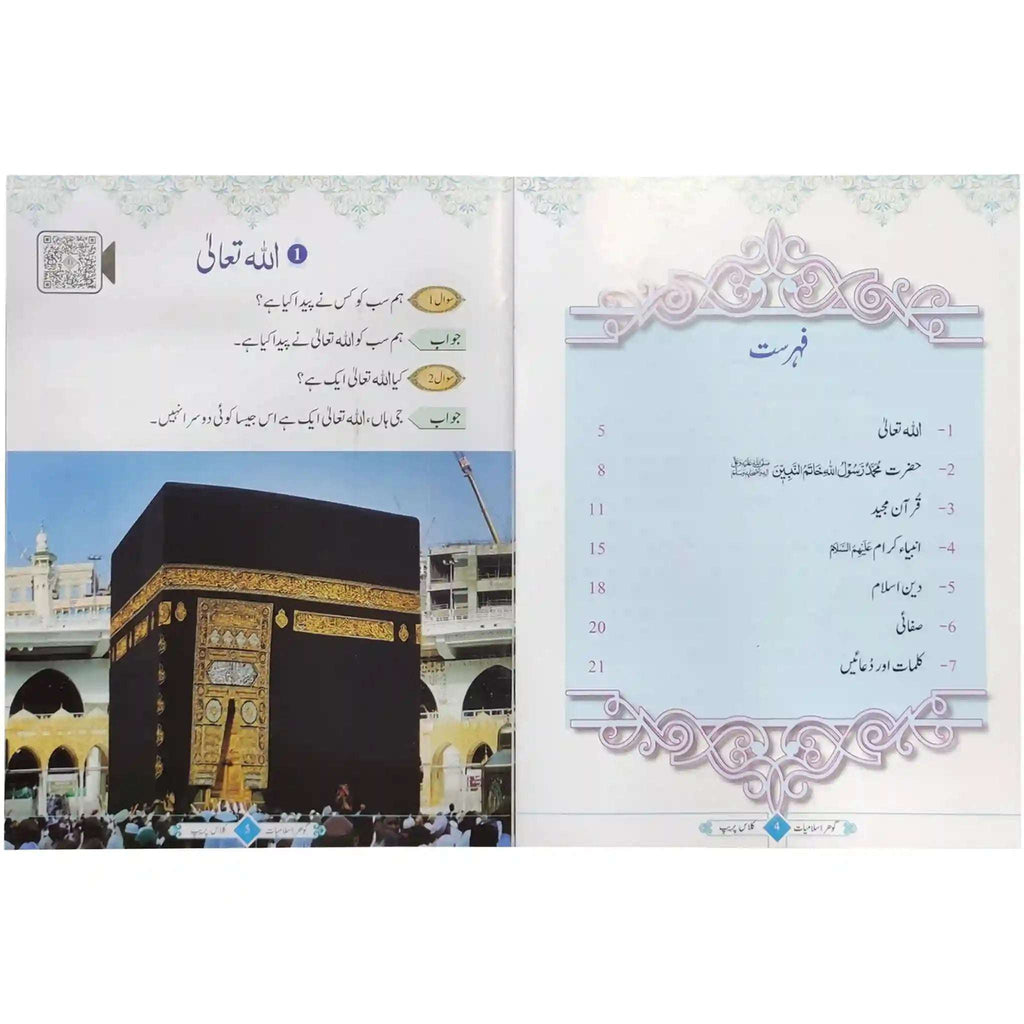 فہرست
1- اللہ تعالیٰ 5
2- حضرت مُحَمَّدٌ رَّسُوْلُ اللہِ خَاتَمُ النَّبِیِّیْنَ صَلَّی اللہُ عَلَیْہِ وَاٰلِہٖ وَاَصْحَابِہٖ وَسَلَّمَ 8
3- قُرآن مجید 11
4- انبیاء کرام عَلَیْہِمُ السَّلَام 15
5- دین اسلام 18
6- صفائی 20
7- کلمات اور دُعائیں 21
گوھر اسلامیات 4 کلاس پریپ
1 اللہ تعالیٰ
سوال 1 ہم سب کو کس نے پیدا کیا ہے؟
جواب ہم سب کو اللہ تعالیٰ نے پیدا کیا ہے۔
سوال 2 کیا اللہ تعالیٰ ایک ہے؟
جواب جی ہاں، اللہ تعالیٰ ایک ہے اس جیسا کوئی دوسرا نہیں۔
گوھر اسلامیات 5 کلاس پریپ